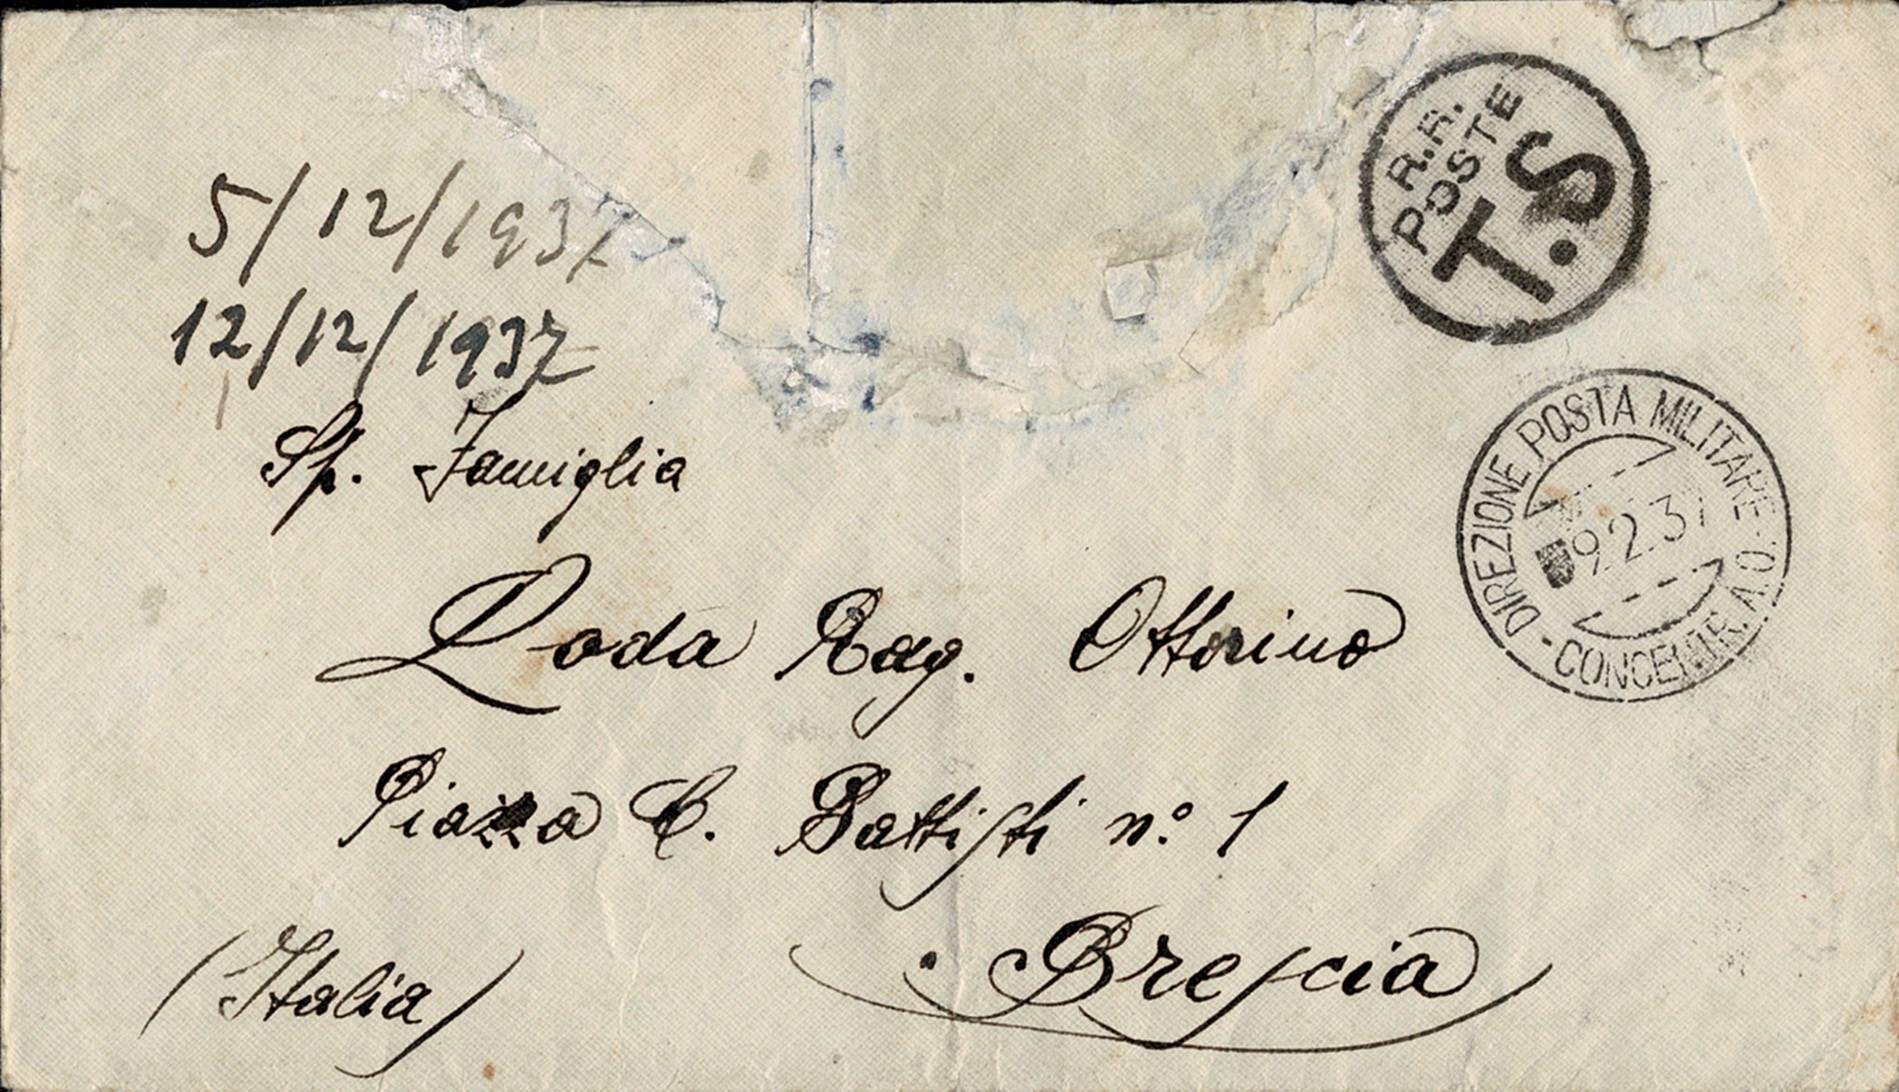 5/12/1937
12/12/1937
R.R.
POSTE
T.S
DIREZIONE POSTA MILITARE
9.2.37
- CONCENTR. A.O. -
Sp. Famiglia
Loda Rag. Ottorino
Piazza C. Battisti n.° 1
Brescia
(Italia)